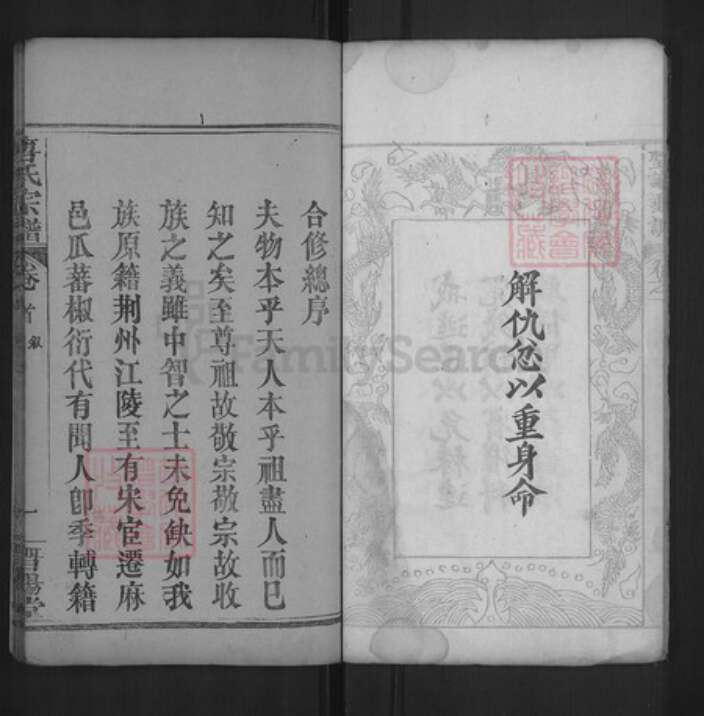 解仇忿以重身命
合修總序
夫物本乎天人本乎祖盡人而巳
知之矣至尊祖故敬宗敬宗故收
族之義雖中智之士未免缺如我
族原籍荆州江陵至有宋宦遷麻
邑瓜蕃椒衍代有聞人卽季轉籍
氏宗譜
卷首
一
FamilySearch